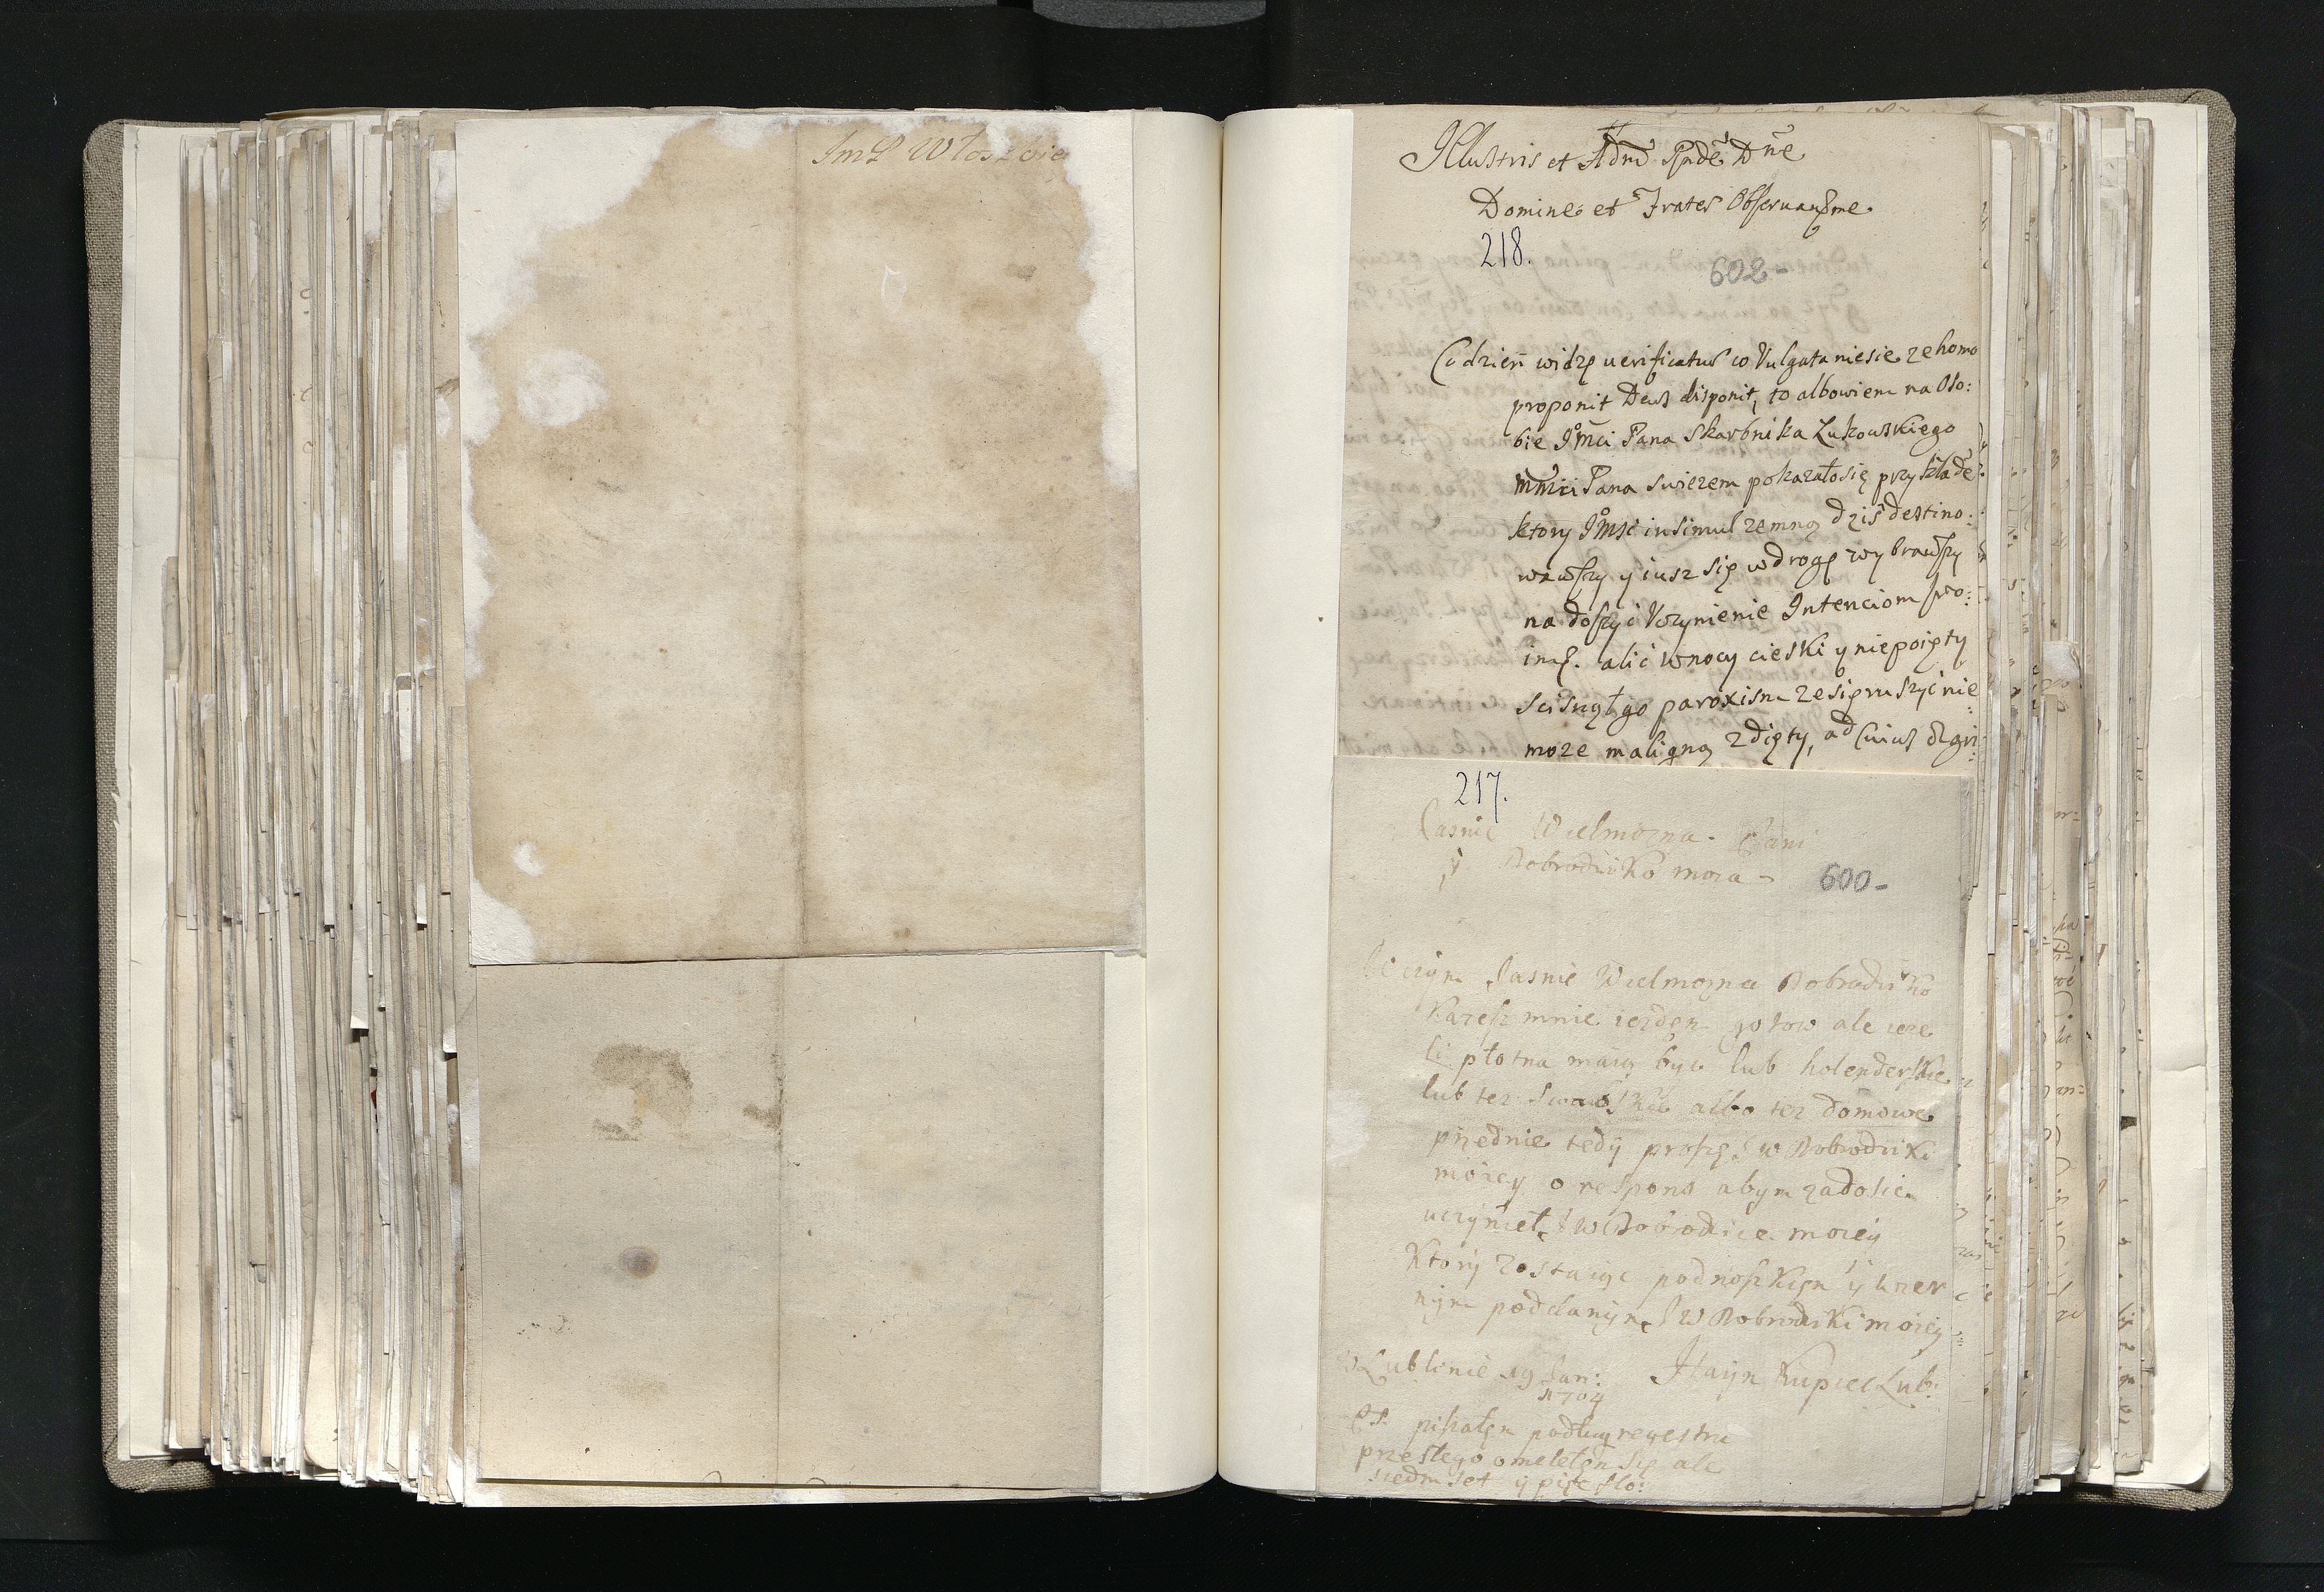 ImP Włoszbie
Illustris et Admd Rnde Dne
Domine et Frater Obseruansme
218.
602-
Codzień widzę uerificatur co Vulgata niesie ze homo
proponit Deus disponit, to albowiem na Oso:
bie Jmci Pana Skarbnika Łukowskiego
mmci Pana swiezem pokazało się przykłade
ktory Jmsc insimul zemną dziś destino:
wawszy y iusz się wdrogę wybrawszy
na dosyć Vczynienie Intenciom swo:
im. alić wnocy cieski y niepoięty
scisnął go paroxism ze się ruszyć nie
moze maligną zdięty, ad Cuius
217.
Jasnie Wielmozna Pani
y Dobrodziko moia
600-
czym Jasnie Wielmozna Dobrodziko
Kazesz mnie iezdem gotow ale ieze
li płotna maią byc lub holenderskie
lub tez Swabskie albo tez domowe
przednie tedy proszę J W Dobrodziki
moiey o respons abym zadosic
uczynieł J W Dobrodzice moiey
Ktory zostaię podnoszkiem y wier
nym poddanym J W Dobrodziki moiey
w Lublinie 19 Jan: Hayn Kupiec Lub:
1704
PS. pisałem podług regestru
przesłego omeletem się ale
siedm set y pięc sło: